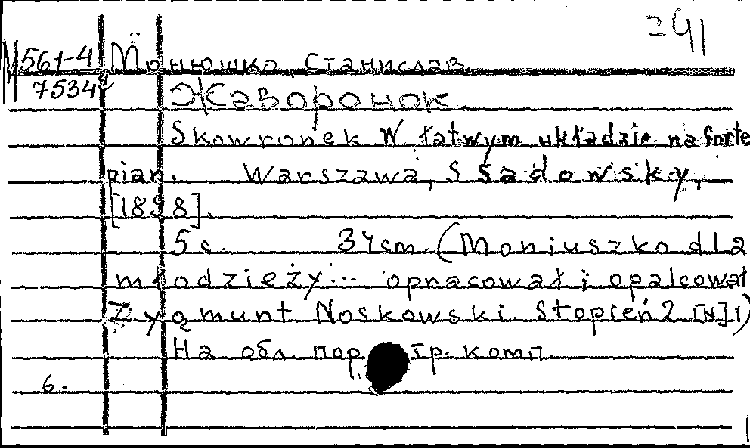 241
М 561-4 Монюшко Станислав
7534 Жаворонок
Skowronek W łatwym układzie na forte
pian. Warszawa, S Sadowsky,
[1898].
5 с. 34 cm. (Moniuszko dla
młodzieży... opracował i opalcował
Zygmunt Noskowski. Stopień 2 [N] 1)
На обл. пор тр. комп.
6.